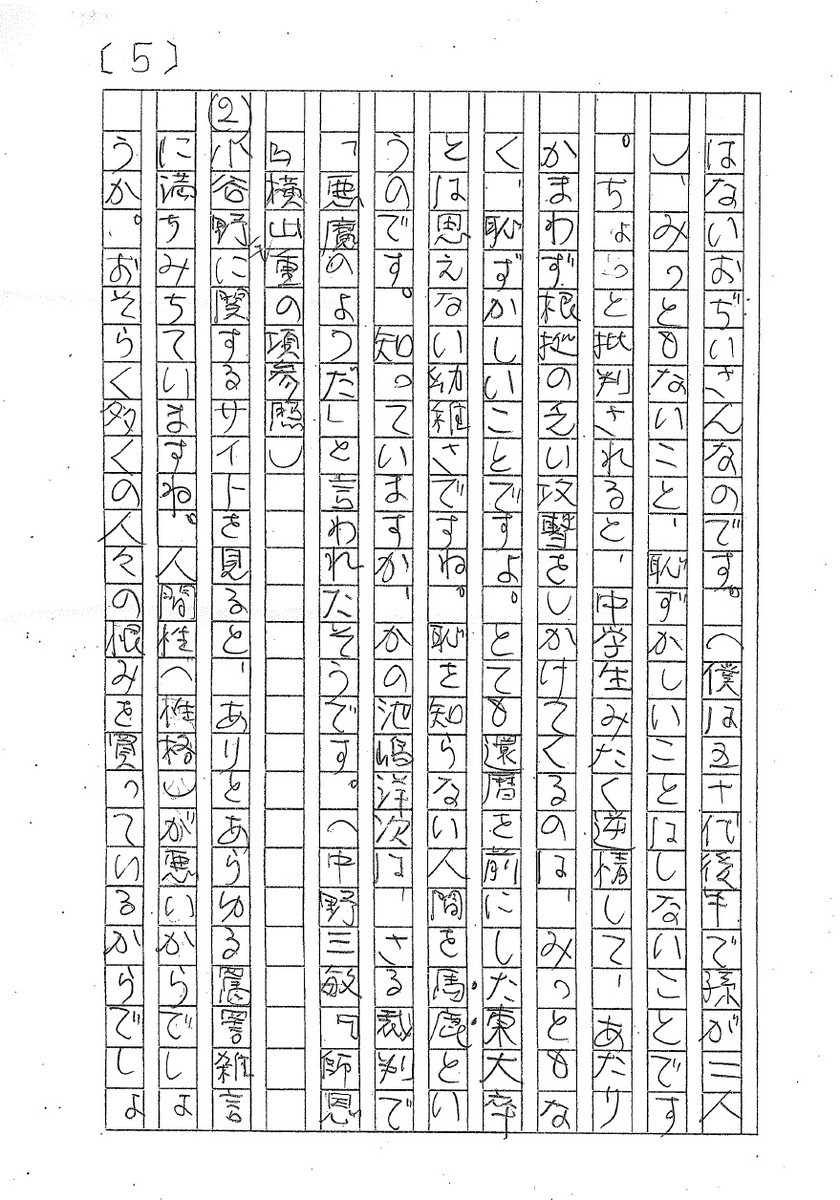 〔5〕
はないおぢいさんなのです。(僕は五十代後半で孫が三人
)、みっともないこと、恥ずかしいことはしないことです
。ちょっと批判されると、中学生みたく逆情して、あたり
かまわず根拠のない攻撃をしかけてくるのは、みっともな
く、恥ずかしいことですよ。とても還暦を前にした東大卒
とは思えない幼稚さですね。恥を知らない人間を馬鹿とい
うのです。知っていますか、かの池嶋洋次は、さる裁判で
「悪魔のようだ」と言われたそうです。(中野三敏『師恩
』横山重の項参照)
(2)小谷野に関するサイトを見ると、ありとあらゆる罵詈雑言
に満ちみちていますね。人間性(性格)が悪いからでしょ
うか。おそらく多くの人々の恨みを買っているからでしょ